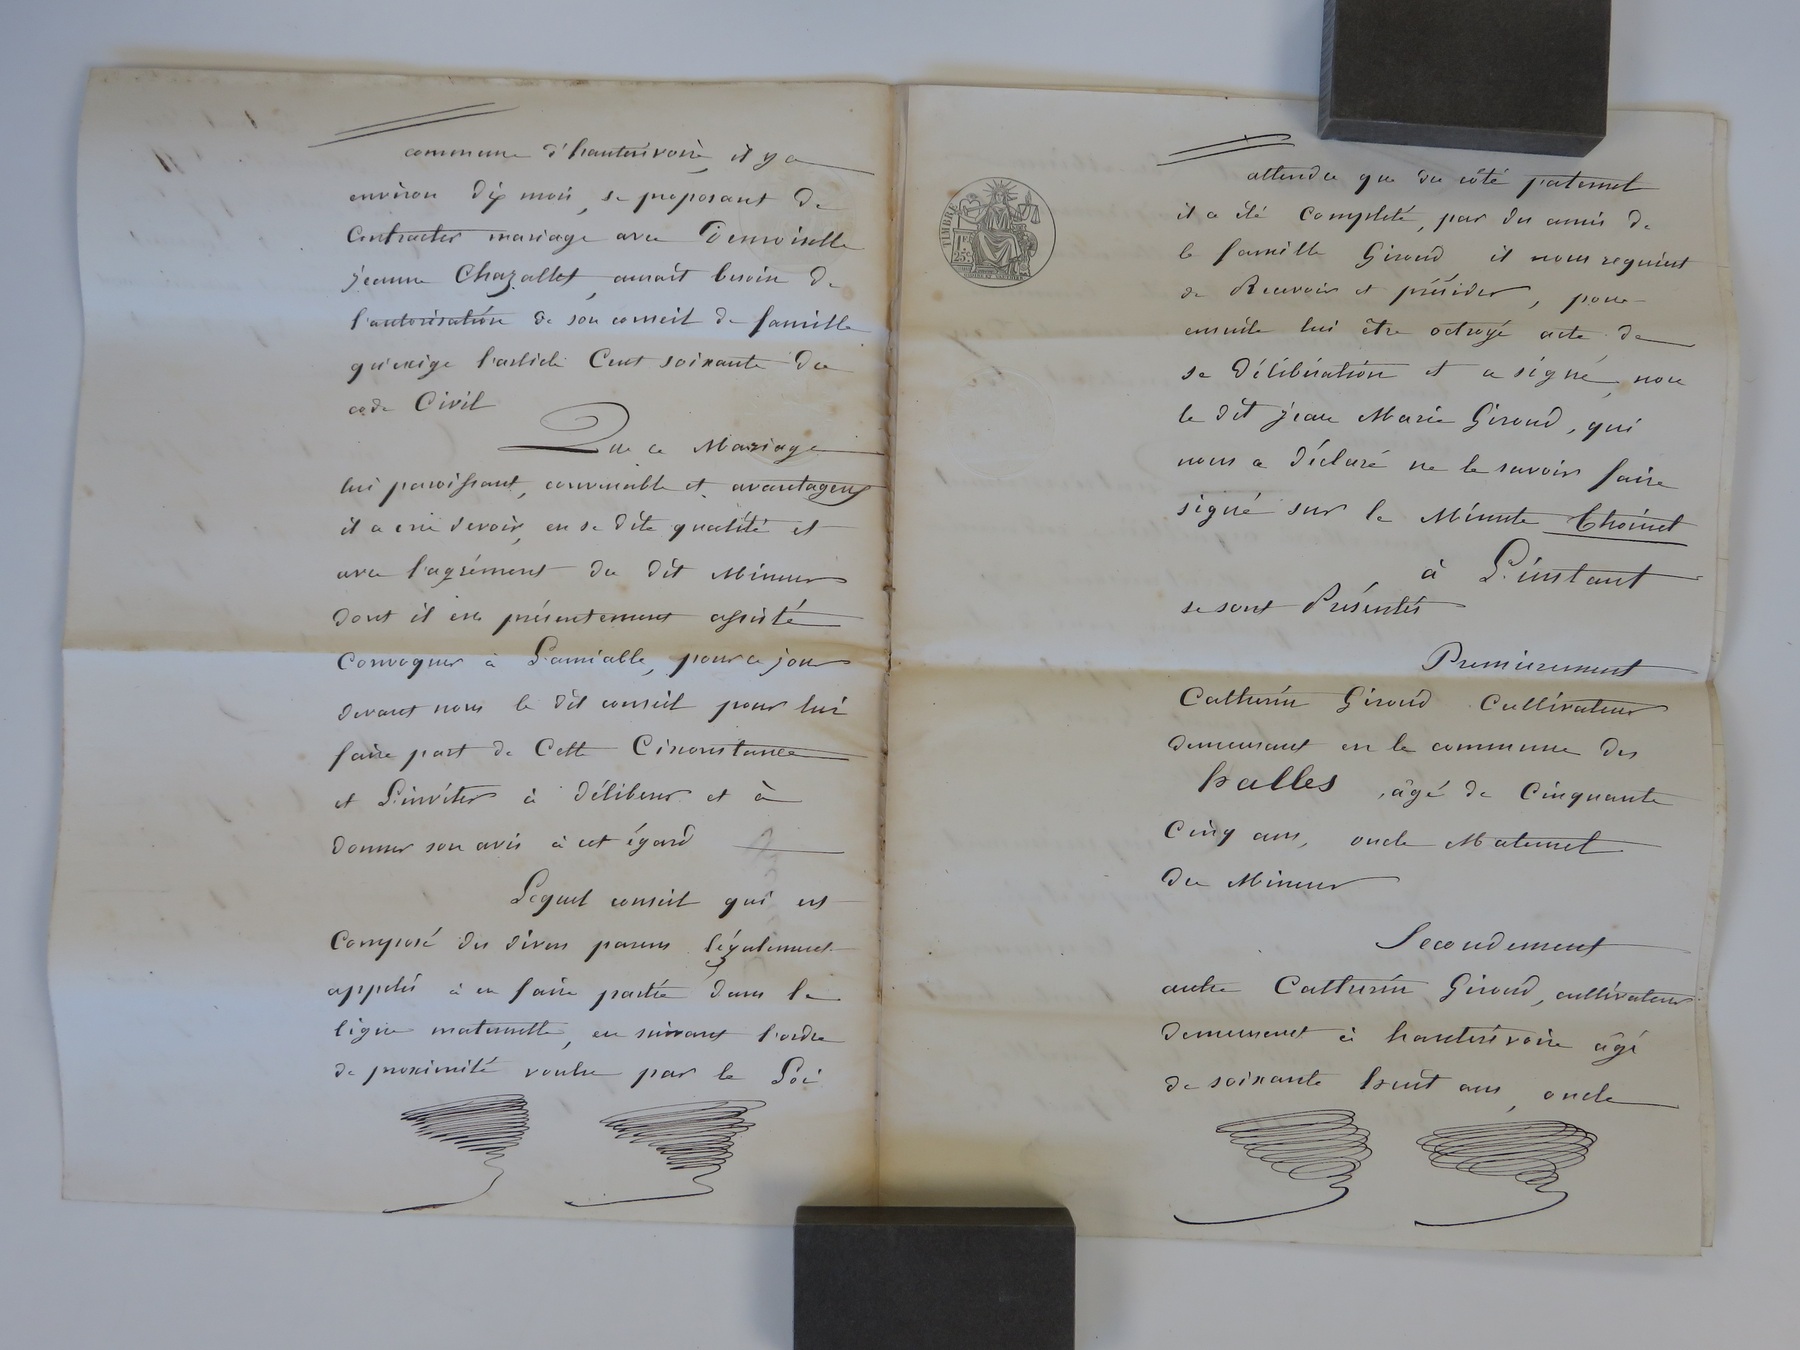 commune d'hauterivoire, il y a
environ dix mois, se proposant de
Contracter mariage avec Demoiselle
jeanne Chazallet, aurait besoin de
l'autorisation de son conseil de famille
qu'exige l'article Cent soixante du
code Civil
Que ce Mariage
lui paroissant, convenable et avantageux
il a crue devoir, en se dite qualité et
avec l'agrément du dit Mineur
dont il est présentement assisté
Convoquer à L'amiable, pour ce jour
devant nous le dit conseil pour lui
faire part de Cette Circonstance
et L'inviter à délibérer et à
donner son avis à cet égard
Lequel conseil qui est
Composé des divers parens légalement
appelés à en faire partie dans la
ligne maternelle, en suivant l'ordre
de proximité voulue par la Loi
TIMBRE
1F.
25c.
attendu que du côté paternel
il a été Completé, par des amis de
la famille Giroud il nous requiert
de Recevoir et présider, pour
ensuite lui être octroyé acte de
sa Délibération et a signé, non
le dit jean Marie Giroud, qui
nous a déclaré ne le savoir faire
signé sur la Minute Thoinet
à L'instant
se sont Présentés
Premierement
Catherin Giroud Cultivateur
demeurant en la commune des
halles, âgé de Cinquante
Cinq ans, oncle Maternel
du Mineur
Secondement
autre Catherin Giroud, cultivateur
demeurant à hauterivoire âgé
de soixante huit ans, oncle